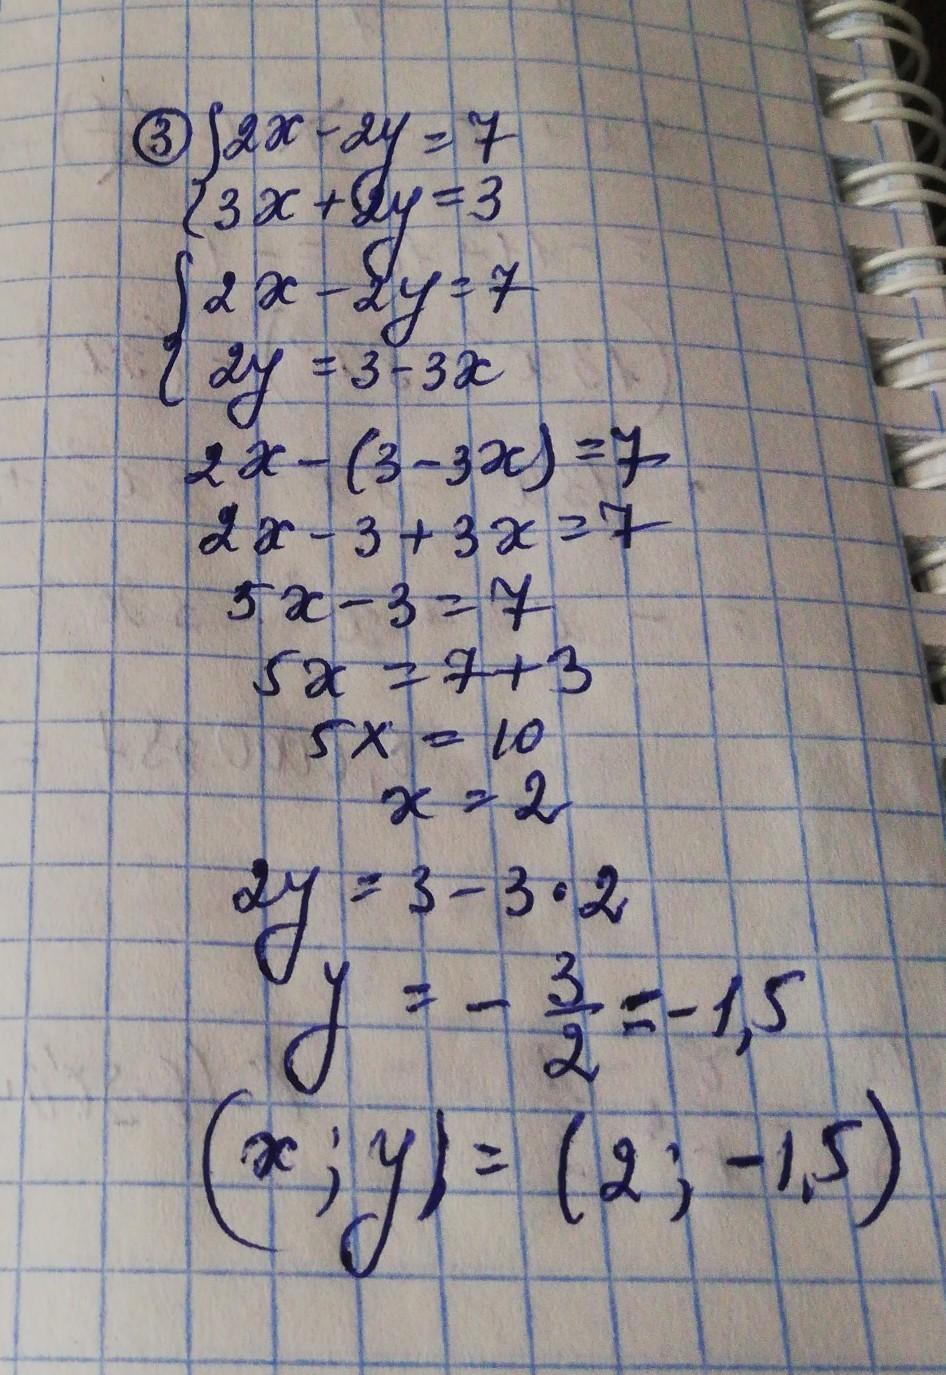 ③ {2x - 2y = 7
{3x + 2y = 3
{2x - 2y = 7
{2y = 3 - 3x
2x - (3 - 3x) = 7
2x - 3 + 3x = 7
5x - 3 = 7
5x = 7 + 3
5x = 10
x = 2
2y = 3 - 3 · 2
y = - 3/2 = - 1,5
(x ; y) = (2 ; -1,5)